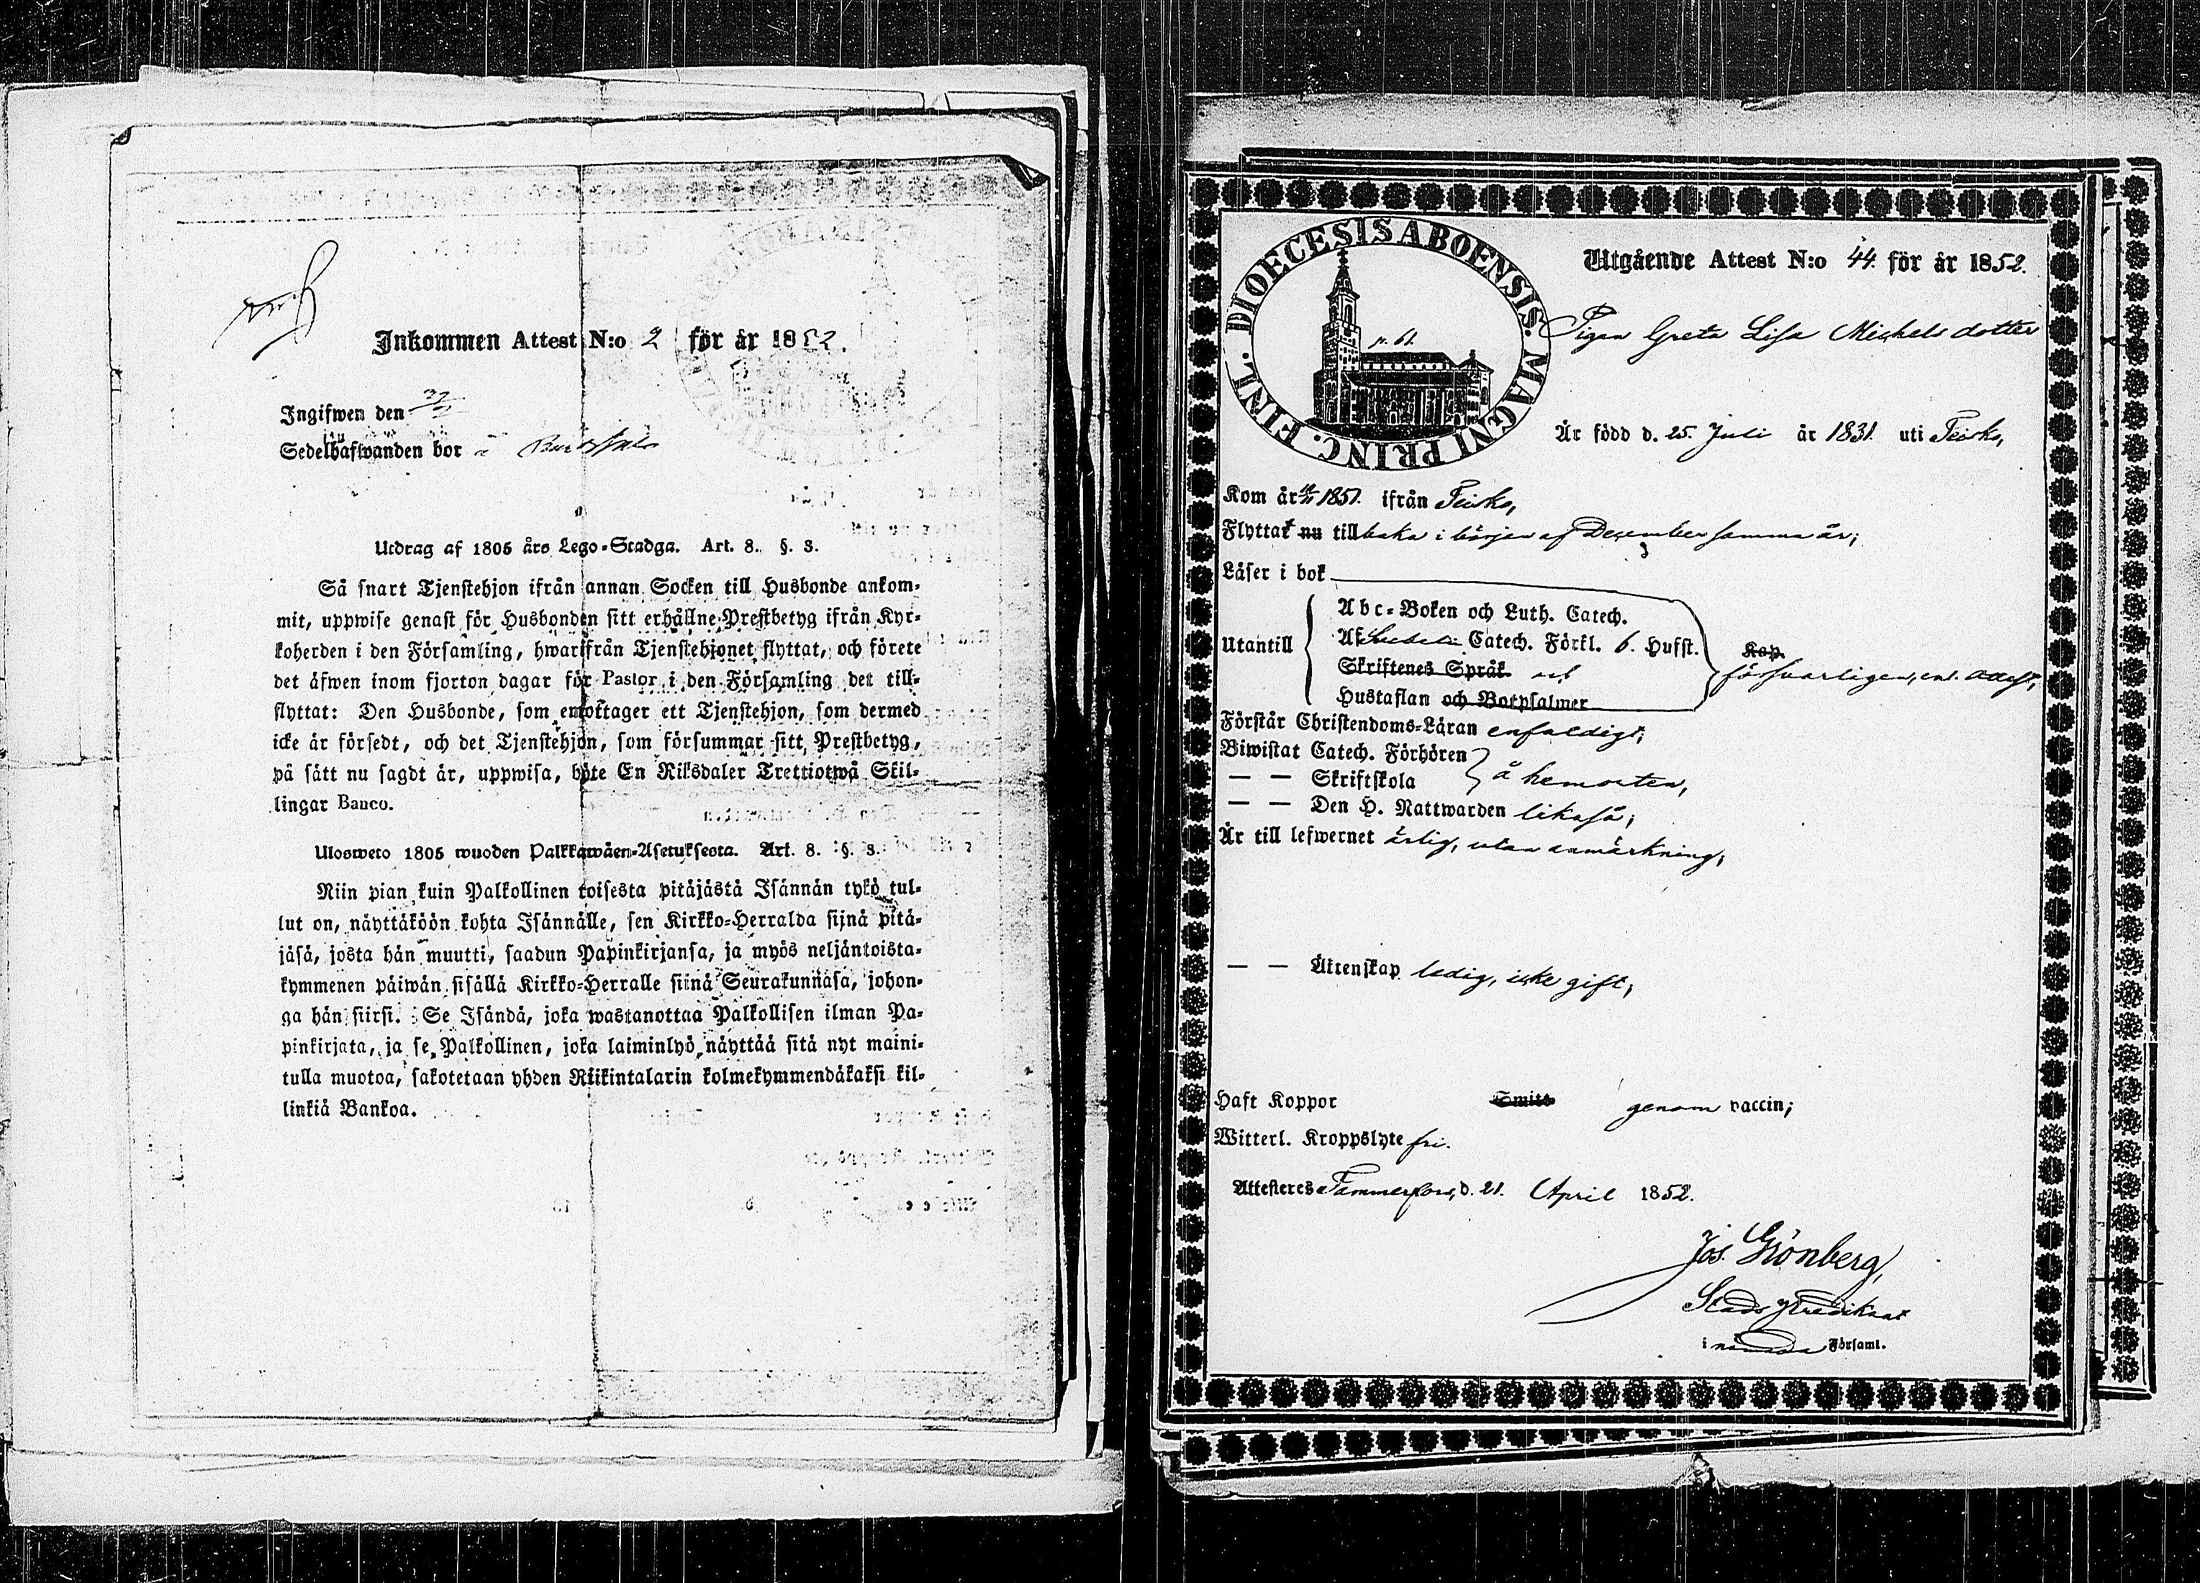 Inkommen Attest N:o 2 för år 1852.
Ingifwen den
Sedelhafwanden bor
Utdrag af 1805 års Lego-Stadga. Art. 8. §. 3.
Så snart Tjenstehjon ifrån annan Socken till Husbonde ankom-
mit, uppwise genast för Husbonden sitt erhållne Prestbetyg ifrån Kyr-
koherden i den Församling, hwarifrån Tjenstehjonet flyttat, och förete
det äfwen inom fjorton dagar för Pastor i den Församling det till-
flyttat: Den Husbonde, som emottager ett Tjenstehjon, som dermed
icke är försedt, och det Tjenstehjon, som försummar sitt Prestbetyg,
på sätt nu sagdt är, uppwisa, böte En Riksdaler Trettiotwå Skil-
lingar Banco.
Ulosweto 1805 wuoden Palkkawäen-Asetuksesta. Art. 8. §. 3.
Niin pian kuin Palkollinen toisesta pitäjästä Isännän tykö tul-
lut on, näyttäköön kohta Isännälle, sen Kirkko-Herralda siinä pitä-
jäsä, josta hän muutti, saadun Papinkirjansa, ja myös neljäntoista-
kymmenen päiwän sisällä Kirkko-Herralle siinä Seurakunnasa, johon-
ga hän siirsi. Se Isändä, joka wastanottaa Palkollisen ilman Pa-
pinkirjata, ja se Palkollinen, joka laiminlyö näyttää sitä nyt maini-
tulla muotoa, sakotetaan yhden Riikintalarin kolmekymmendäkaksi kil-
linkiä Bankoa.
DIOECESIS ABOENSIS. MAGNI PRINC. FINL.
p. 61.
Utgående Attest N:o 44. för år 1852.
Pigan Greta Lisa Michelsdotter
Är född d. 25. Juli år 1831. uti Teisko,
Kom år 1851. ifrån Teisko,
Flyttat nu tillbaka i början af December samma år;
Läser i bok
Utantill
Abc-Boken och Luth. Catech.
Af Catech. Förkl. 6. Hufst.
Skriftenes Språk och
Hustaflan och Botpsalmer
Kap.
försvarligen, enl. attest,
Förstår Christendoms-Läran enfaldigt,
Biwistat Catech. Förhören
— — Skriftskola
å hemorten,
— — Den H. Nattwarden likaså;
Är till lefwernet ärlig, utan anmärkning,
— — Äktenskap ledig, icke gift,
Haft Koppor Smitt genom vaccin;
Witterl. Kroppslyte fri.
Attesteres Tammerfors, d. 21. April 1852.
Jos. Grönberg,
Stads Predikant
i nämnda Församl.